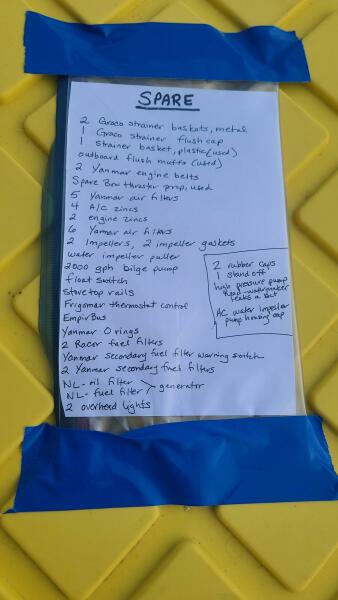 SPARE
2 Groco strainer baskets, metal
1 Groco strainer flush cap
1 strainer basket, plastic (used)
outboard flush muffs (used)
2 Yanmar engine belts
Spare Bow thruster prop, used
5 Yanmar air filters
4 A/C zincs
2 engine zincs
6 Yanmar air filters
2 Impellers, 2 impeller gaskets
water impeller puller
2000 gph bilge pump
float switch
Stove top rails
Frigomar thermostat control
EmpirBus
Yanmar O rings
2 Racor fuel filters
Yanmar secondary fuel filter warning switch
2 Yanmar secondary fuel filters
NL- oil filter
NL- fuel filter > generator
2 overhead lights
2 rubber caps
1 stand off
high pressure pump
head - watermaker
leaks a bit
AC water impeller
pump housing cap